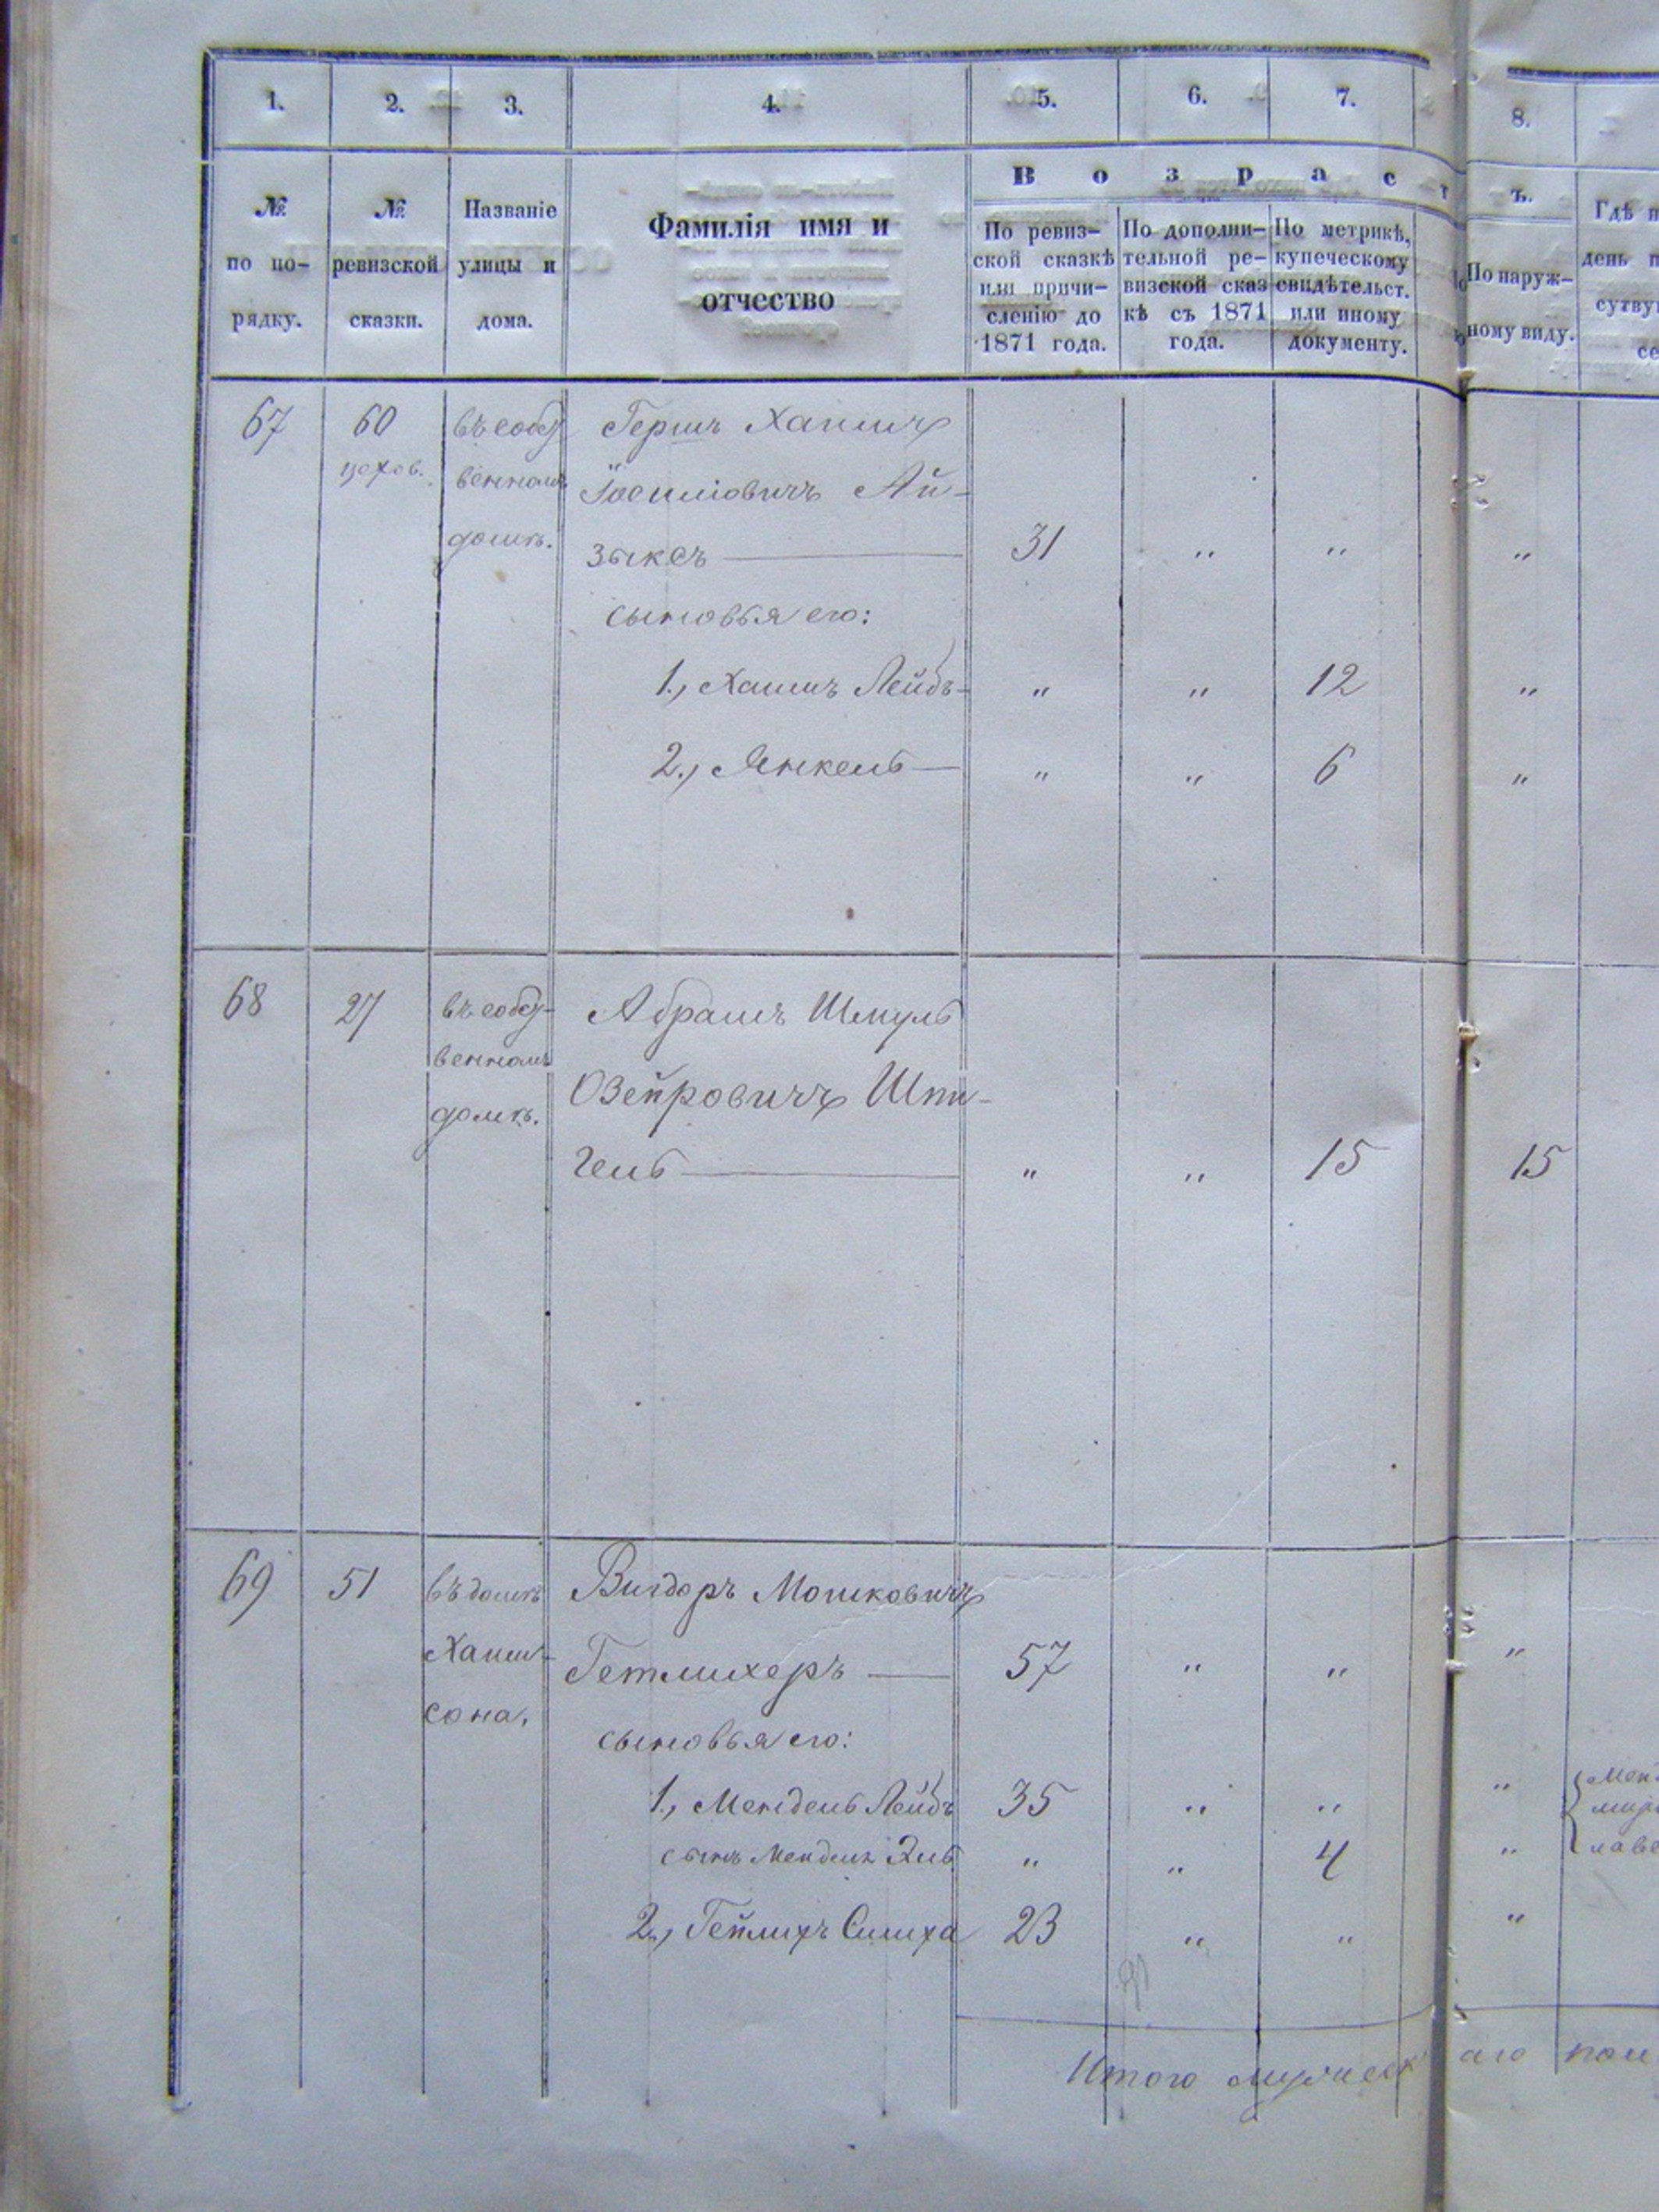 1. 2. 3. 4. 5. 6. 7. 8.
№ по по-рядку.
№ ревизской сказки.
Названіе улицы и дома.
Фамилія имя и отчество
Возрастъ.
По ревиз-
ской сказкѣ
или причи-
сленію до
1871 года.
По дополни-
тельной ре-
визской сказ
кѣ съ 1871
года.
По метрикѣ,
купеческому
свидѣтельст.
или иному
документу.
По наруж-
ному виду.
Гдѣ
день
сутву
67 60 въ собст Гершъ Хаимъ
цехов. венномъ Іосиліовичъ Ай-
домѣ. зыксъ 31 " " "
сыновья его:
1., Хаимъ Лейбъ " " 12 "
2., Янкель " " 6 "
68 27 въ собст- Абрамъ Шмуль
венномъ Озейровичъ Шпи-
домѣ. гель " " 15 15
69 51 въ домѣ Вигдоръ Мошковичъ
Хаим- Гетлихеръ 57 " " "
сона. сыновья его:
1., Мендель Лейбъ 35 " " "
сынъ Менделя Эль " " 4 "
2., Гейлихъ Симха 23 " " "
Итого мужескаго пол